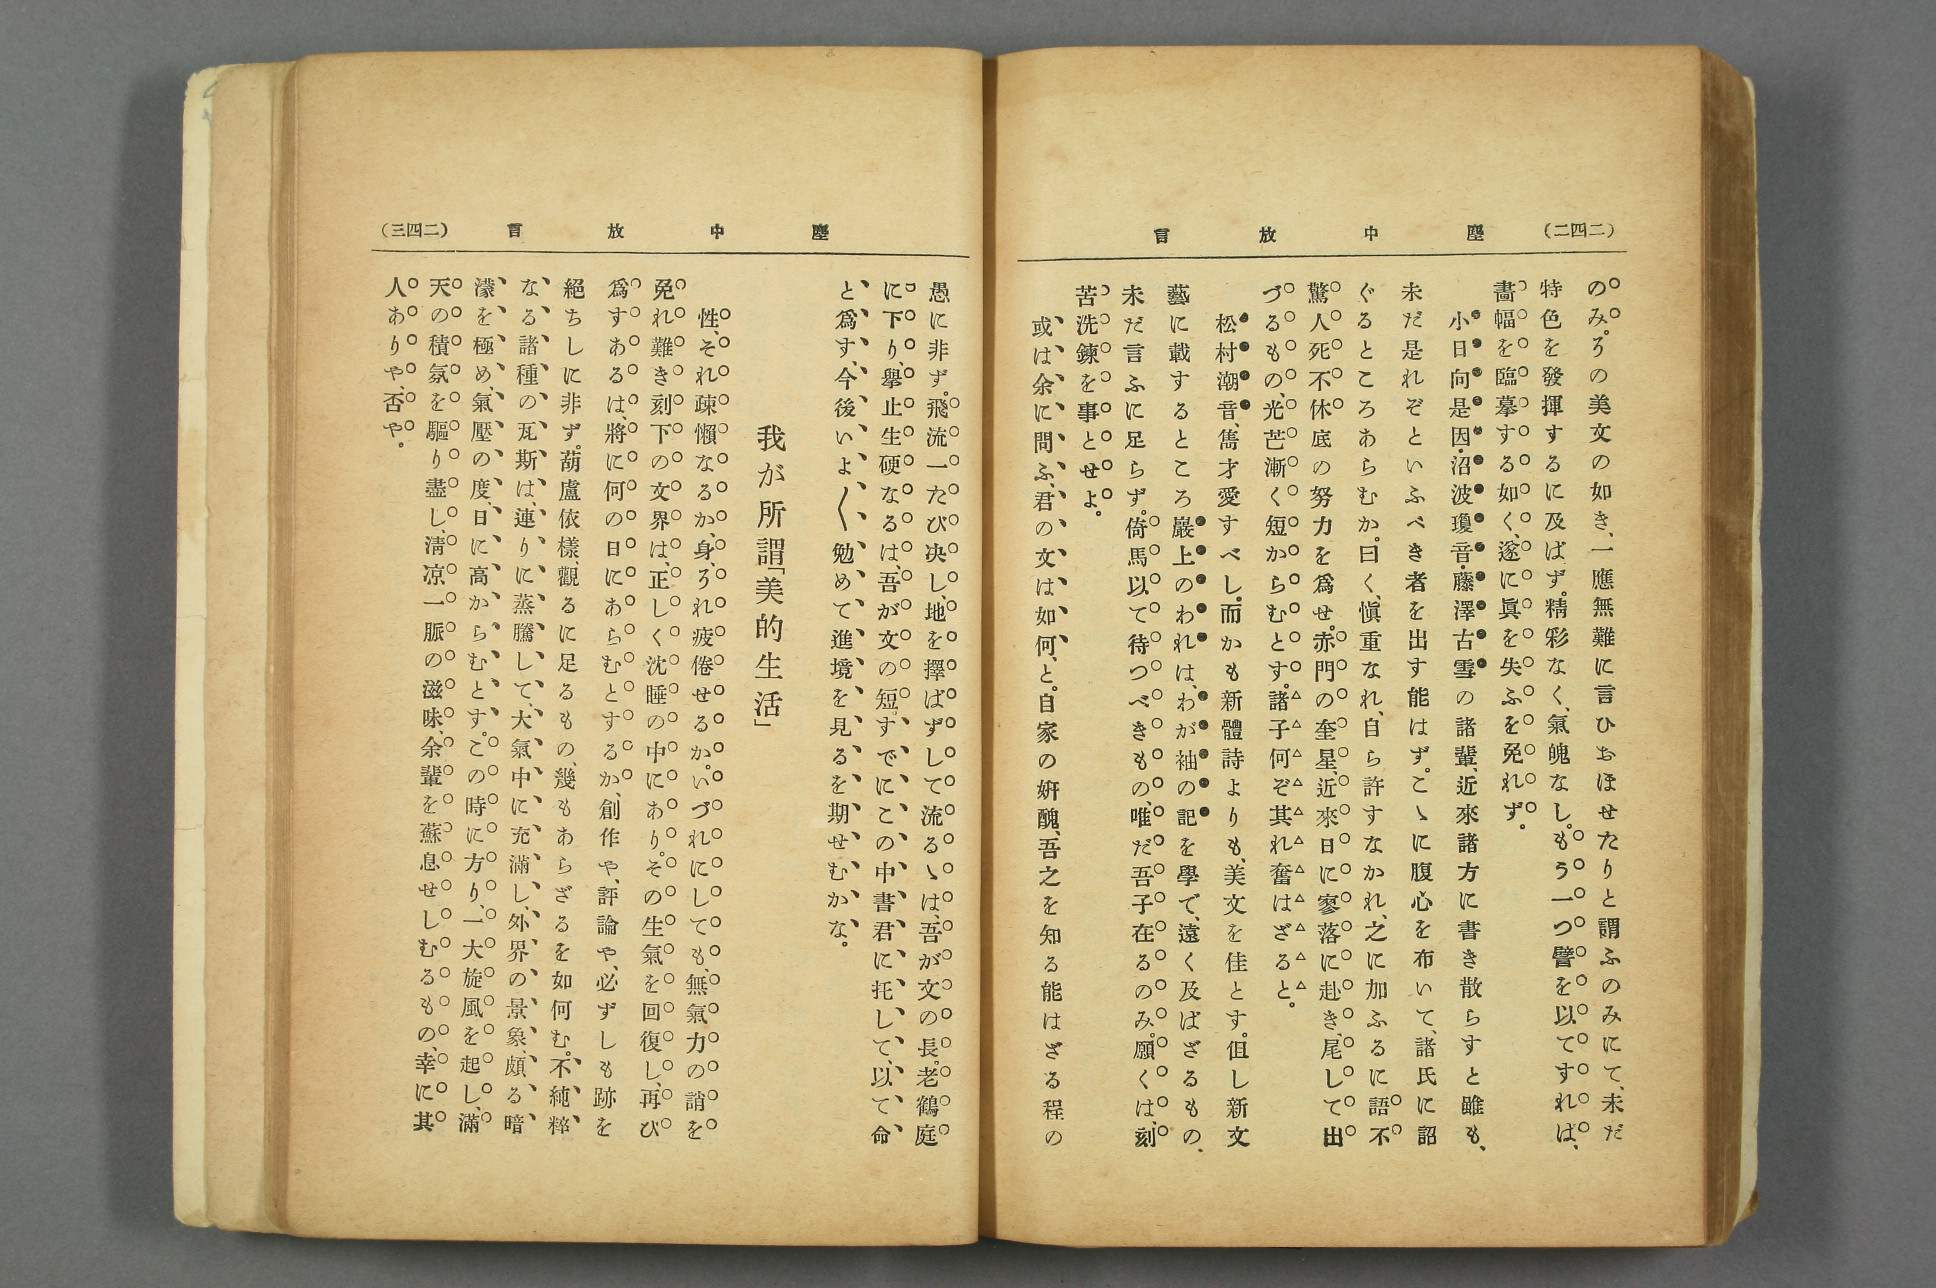 (二四二) 塵中放言
のみ。ろの美文の如き、一應無難に言ひおほせたりと謂ふのみにて、未だ
特色を發揮するに及ばず。精彩なく、氣魄なし。もう一つ譬を以てすれば、
畵幅を臨摹する如く、遂に眞を失ふを免れず。
小日向是因・沼波瓊音・藤澤古雪の諸輩、近來諸方に書き散らすと雖も、
未だ是れぞといふべき者を出す能はず。こゝに腹心を布いて、諸氏に詔
ぐるところあらむか。曰く、愼重なれ、自ら許すなかれ、之に加ふるに語不
驚人死不休底の努力を爲せ。赤門の奎星、近來日に寥落に赴き、尾して出
づるもの、光芒漸く短からむとす。諸子何ぞ其れ奮はざると。
松村潮音、雋才愛すべし。而かも新體詩よりも、美文を佳とす。但し新文
藝に載するところ巖上のわれは、わが袖の記を學で、遠く及ばざるもの、
未だ言ふに足らず。倚馬以て待つべきもの、唯だ吾子在るのみ。願くは、刻
苦洗鍊を事とせよ。
或は余に問ふ、君の文は如何、と。自家の姸醜、吾之を知る能はざる程の
(二四三) 塵中放言
愚に非ず。飛流一たび决し、地を擇ばずして流るゝは、吾が文の長。老鶴庭
に下り、擧止生硬なるは、吾が文の短。すでにこの中書君に托して、以て命
と爲す、今後いよ〳〵勉めて進境を見るを期せむかな。
我が所謂「美的生活」
性、それ疎懶なるか、身、ろれ疲倦せるか。いづれにしても、無氣力の誚を
免れ難き刻下の文界は、正しく沈睡の中にあり。その生氣を回復し、再び
爲すあるは、將に何の日にあらむとするか、創作や、評論や、必ずしも跡を
絕ちしに非ず。葫盧依樣、觀るに足るもの、幾もあらざるを如何む。不純粹
なる諸種の瓦斯は、連りに蒸騰して、大氣中に充滿し、外界の景象、頗る暗
濛を極め、氣壓の度、日に高からむとす。この時に方り、一大旋風を起し、滿
天の積氛を驅り盡し、淸凉一脈の滋味、余輩を蘇息せしむるもの、幸に其
人ありや、否や。